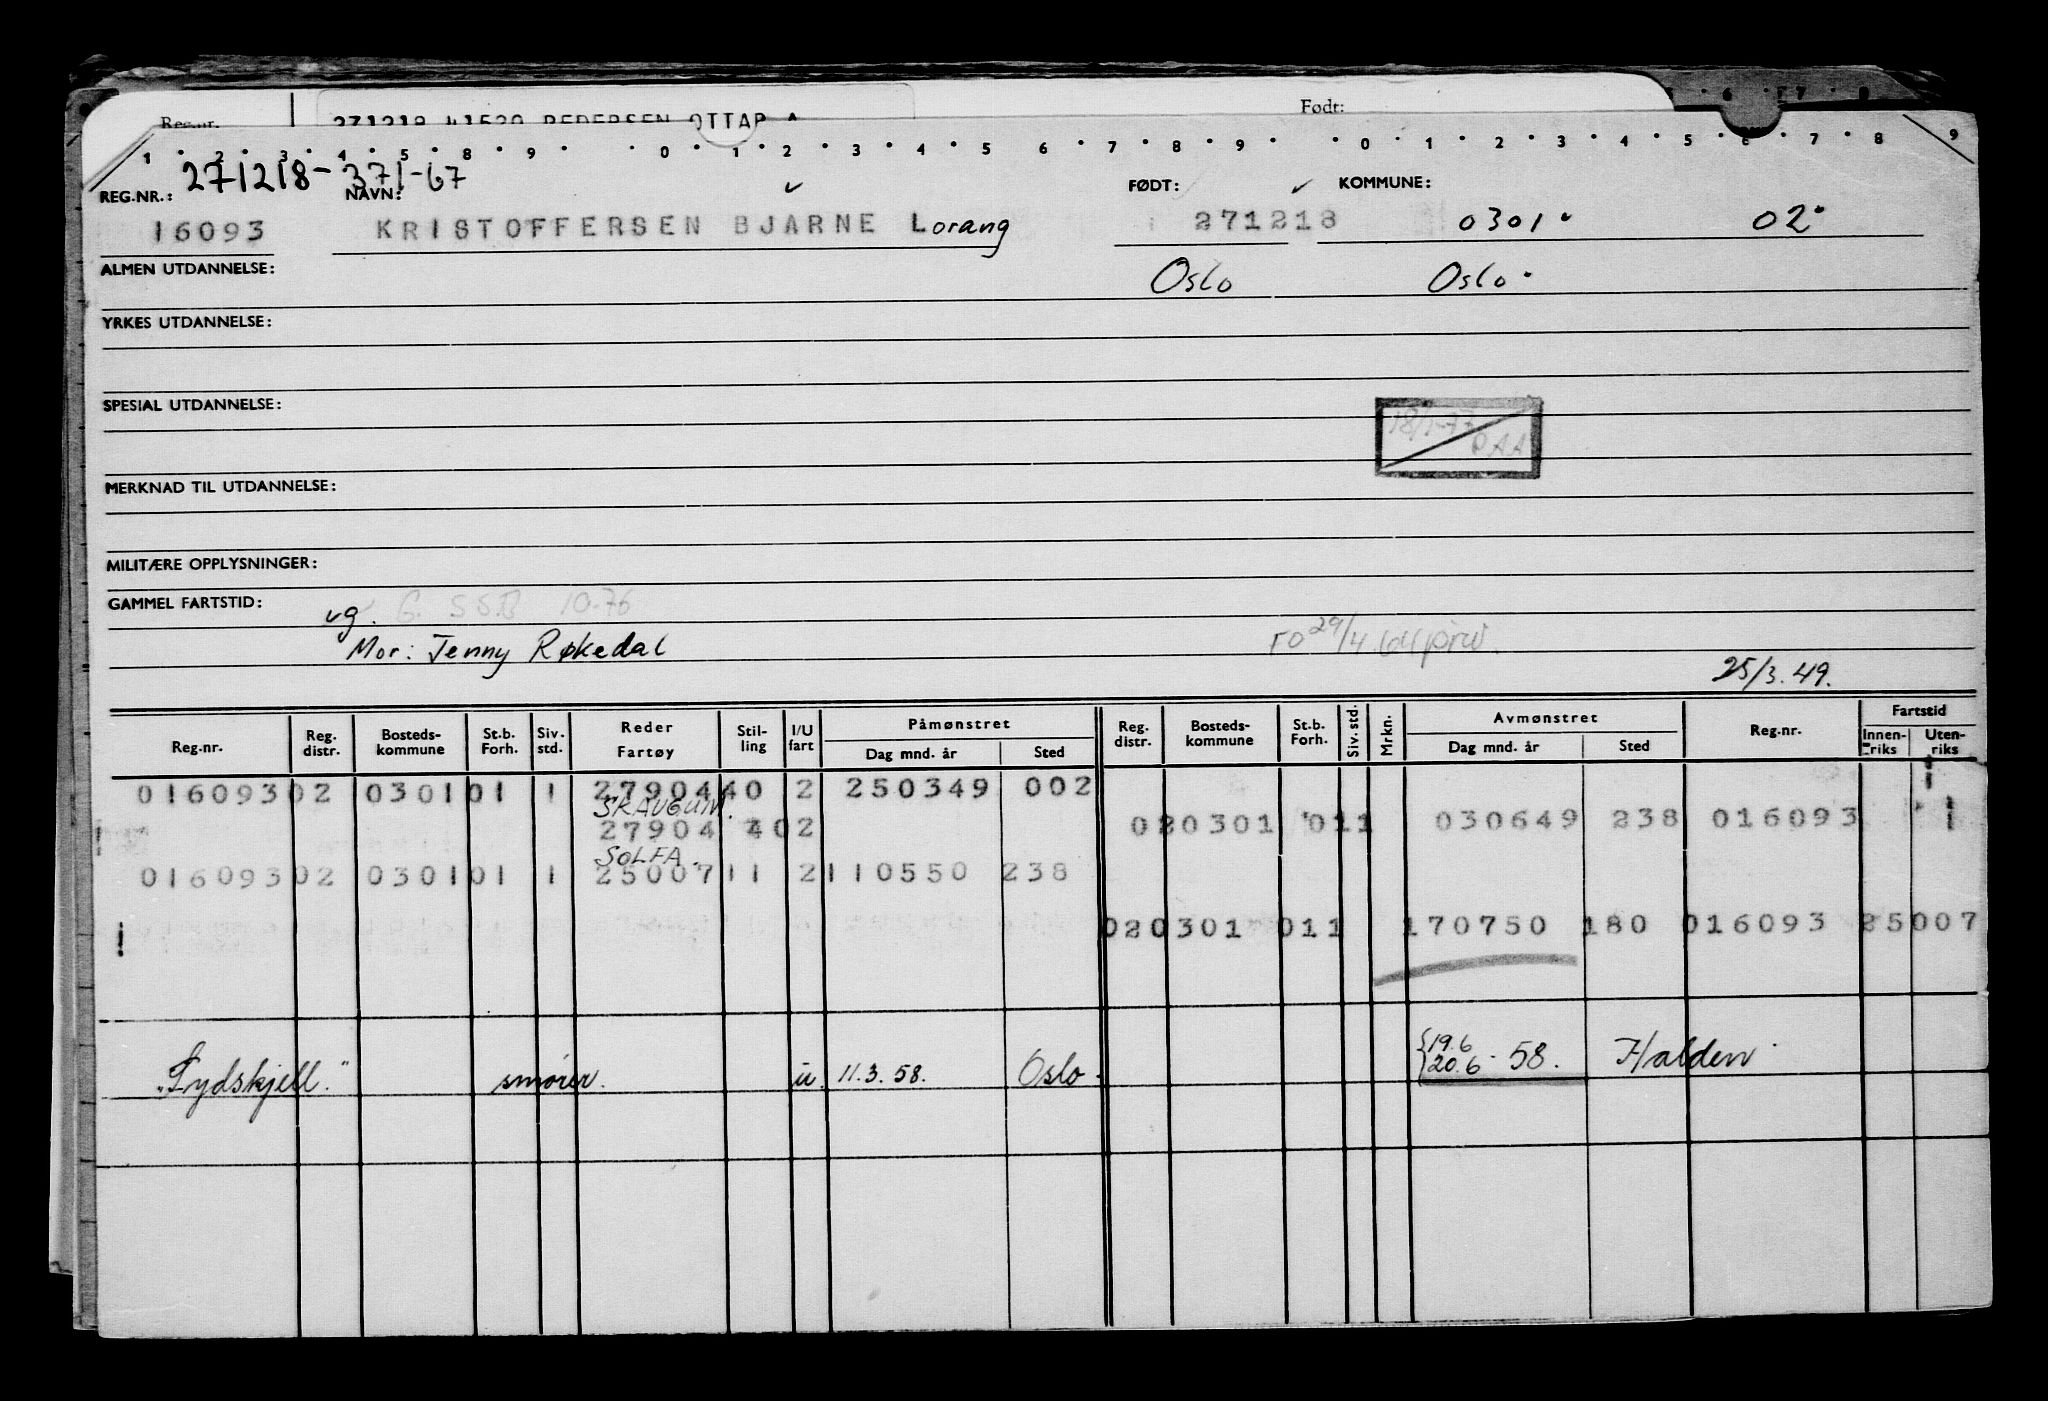 Reg.nr. 271218 41520 PEDERSEN OTTAR A Født:
1 2 3 4 5 8 9 0 1 2 3 4 5 6 7 8 9 0 1 2 3 4 5 6 7 8 9
271218-371-67
REG.NR.: NAVN: FØDT: KOMMUNE:
16093 KRISTOFFERSEN BJARNE Lorang 271218 0301 02
ALMEN UTDANNELSE: Oslo Oslo
YRKES UTDANNELSE:
SPESIAL UTDANNELSE:
18/1-77
MERKNAD TIL UTDANNELSE:
MILITÆRE OPPLYSNINGER:
GAMMEL FARTSTID: vg. G. SSB 10-76
Mor: Jenny Røkedal FO 29/4.64
25/3.49.
Reg.nr. Reg. distr. Bosteds-kommune St.b. Forh. Siv. std. Reder Fartøy Stil-ling I/U fart Påmønstret Dag mnd. år Sted Reg. distr. Bosteds-kommune St.b. Forh. Siv. std. Mrkn. Avmønstret Dag mnd. år Sted Reg.nr. Fartstid Innen-riks Uten-riks
016093 02 0301 01 1 27904 40 2 250349 002
SKAUGUM.
27904 402 020301 011 030649 238 016093
SOLFA.
016093 02 0301 01 1 25007 11 2 110550 238
020301 011 170750 180 016093 25007
"Lydskjell." smører. u. 11.3.58. Oslo. {19.6 20.6 58. Halden